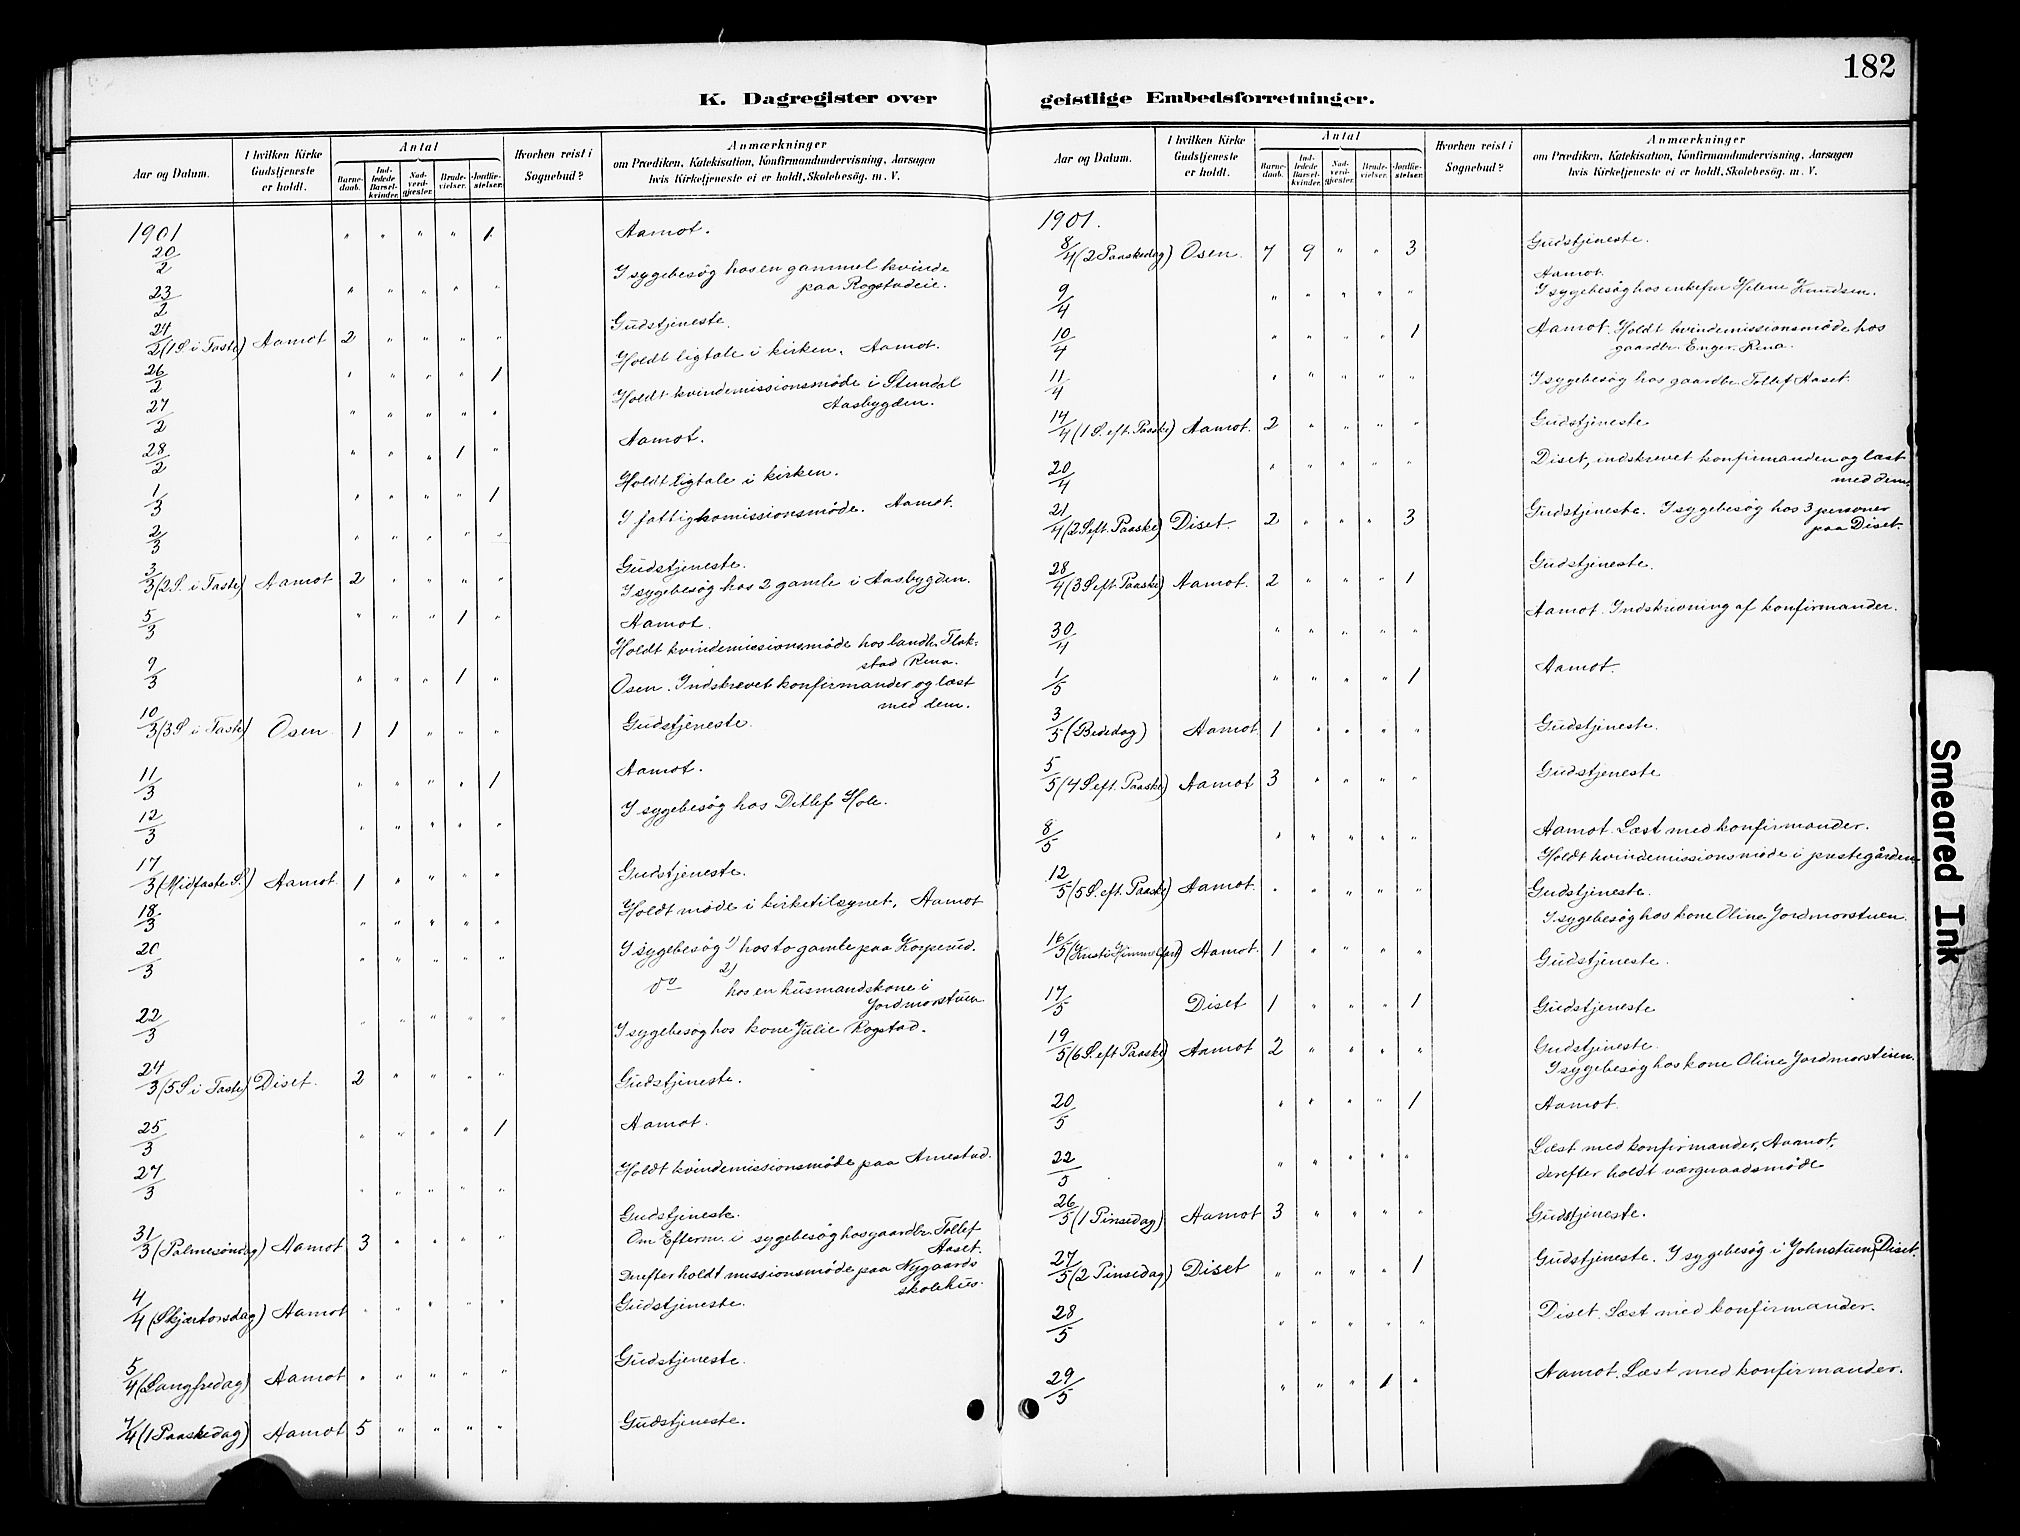 182
K. Dagregister over geistlige Embedsforretninger.
Aar og Datum. I hvilken Kirke Gudstjeneste er holdt. Antal Barnedaab. Indledede Barselkvinder. Nadverdgjester. Brudevielser. Jordfæstelser. Hvorhen reist i Sognebud? Anmærkninger om Prædiken, Katekisation, Konfirmandundervisning, Aarsagen hvis Kirketjeneste ei er holdt, Skolebesøg. m. V.
1901
20/2 " " " " 1 Aamot.
23/2 " " " " " I sygebesøg hos en gammel kvinde
paa Rogstadeie.
24/2 (1 S. i Faste) Aamot 2 " " " " Gudstjeneste.
26/2 " " " " 1 Holdt ligtale i kirken. Aamot.
27/2 " " " " " Holdt kvindemissionsmøde i Stendal
Aasbygden.
28/2 " " " 1 " Aamot.
1/3 " " " " 1 Holdt ligtale i kirken.
2/3 " " " " " I fattigkomissionsmøde. Aamot.
3/3 (2 S. i Faste) Aamot 2 " " " " Gudstjeneste.
I sygebesøg hos 2 gamle i Aasbygden.
5/3 " " " 1 " Aamot.
Holdt kvindemissionsmøde hos landh. Flak-
stad Rena.
9/3 " " " 1 " Osen. Indskrevet konfirmander og læst
med dem.
10/3 (3 S. i Faste) Osen 1 1 " " " Gudstjeneste.
11/3 " " " " 1 Aamot.
12/3 " " " " " I sygebesøg hos Ditlef Hole.
17/3 (Midfaste S.) Aamot. 1 " " " " Gudstjeneste.
18/3 " " " " " Holdt møde i kirketilsynet, Aamot
20/3 " " " " " I sygebesøg 1) hos to gamle paa Korperud.
do 2) hos en husmandskone i
Jordmorstuen
22/3 " " " " " I sygebesøg hos kone Julie Rogstad.
24/3 (5 S i Faste) Diset. 2 " " " " Gudstjeneste.
25/3 " " " " 1 Aamot.
27/3 " " " " " Holdt kvindemissionsmøde paa Arnestad.
31/3 (Palmesøndag) Aamot 3 " " " " Gudstjeneste.
Om Efterm. i sygebesøg hos gaardbr. Tollef
Aaset.
Derefter holdt missionsmøde paa Nygaards
skolehus.
4/4 (Skjærtorsdag) Aamot " " " " " Gudstjeneste.
5/4 (Langfredag) Aamot " " " " " Gudstjeneste.
7/4 (1 Paaskedag) Aamot 5 " " " " Gudstjeneste.
Aar og Datum. I hvilken Kirke Gudstjeneste er holdt. Antal Barnedaab. Indledede Barselkvinder. Nadverdgjester. Brudevielser. Jordfæstelser. Hvorhen reist i Sognebud? Anmærkninger om Prædiken, Katekisation, Konfirmandundervisning, Aarsagen hvis Kirketjeneste ei er holdt, Skolebesøg. m. V.
1901.
8/4 (2 Paaskedag) Osen. 7 9 " " 3 Gudstjeneste.
Aamot.
9/4 " " " " " I sygebesøg hos enkefru Helene Knudsen.
10/4 " " " " 1 Aamot. Holdt kvindemissionsmøde hos
gaardbr. Enger. Rena.
11/4 " " " " " I sygebesøg hos gaardbr. Tollef Aaset.
14/4 (1 S. eft. Paaske) Aamot. 2 " " " " Gudstjeneste
20/4 " " " " " Diset, indskrevet konfirmanden og læst
med dem.
21/4 (2 S eft. Paaske) Diset. 2 " " " 3 Gudstjeneste. I sygebesøg hos 3 personer
paa Diset.
28/4 (3 S. eft. Paaske) Aamot. 2 " " " 1 Gudstjeneste.
30/4 " " " " " Aamot. Indskrivning af konfirmander.
1/5 " " " " 1 Aamot.
3/5 (Bededag) Aamot 1 " " " " Gudstjeneste.
5/5 (4 S. eft. Paaske) Aamot 3 " " " " Gudstjeneste
8/5 " " " " " Aamot. Læst med konfirmander.
Holdt kvindemissionsmøde i prestegården
12/5 (5 S. eft. Paaske) Aamot. " " " " " Gudstjeneste.
I sygebesøg hos kone Oline Jordmorstuen.
16/5 (Kristi Himmelfart) Aamot. 1 " " " " Gudstjeneste.
17/5 Diset 1 " " " 1 Gudstjeneste
19/5 (6 S. eft Paaske) Aamot 2 " " " " Gudstjeneste.
I sygebesøg hos kone Oline Jordmorstuen.
20/5 " " " " 1 Aamot.
22/5 " " " " " Læst med konfirmander, Aamot,
derefter holdt værgeraadsmøde
26/5 (1 Pinsedag) Aamot 3 " " " " Gudstjeneste.
27/5 (2 Pinsedag) Diset " " " " 1 Gudstjeneste. I sygebesøg i Johnstuen, Diset.
28/5 " " " " " Diset. Læst med konfirmander.
29/5 " " " 1 " Aamot. Læst med konfirmander.
Smeared Ink